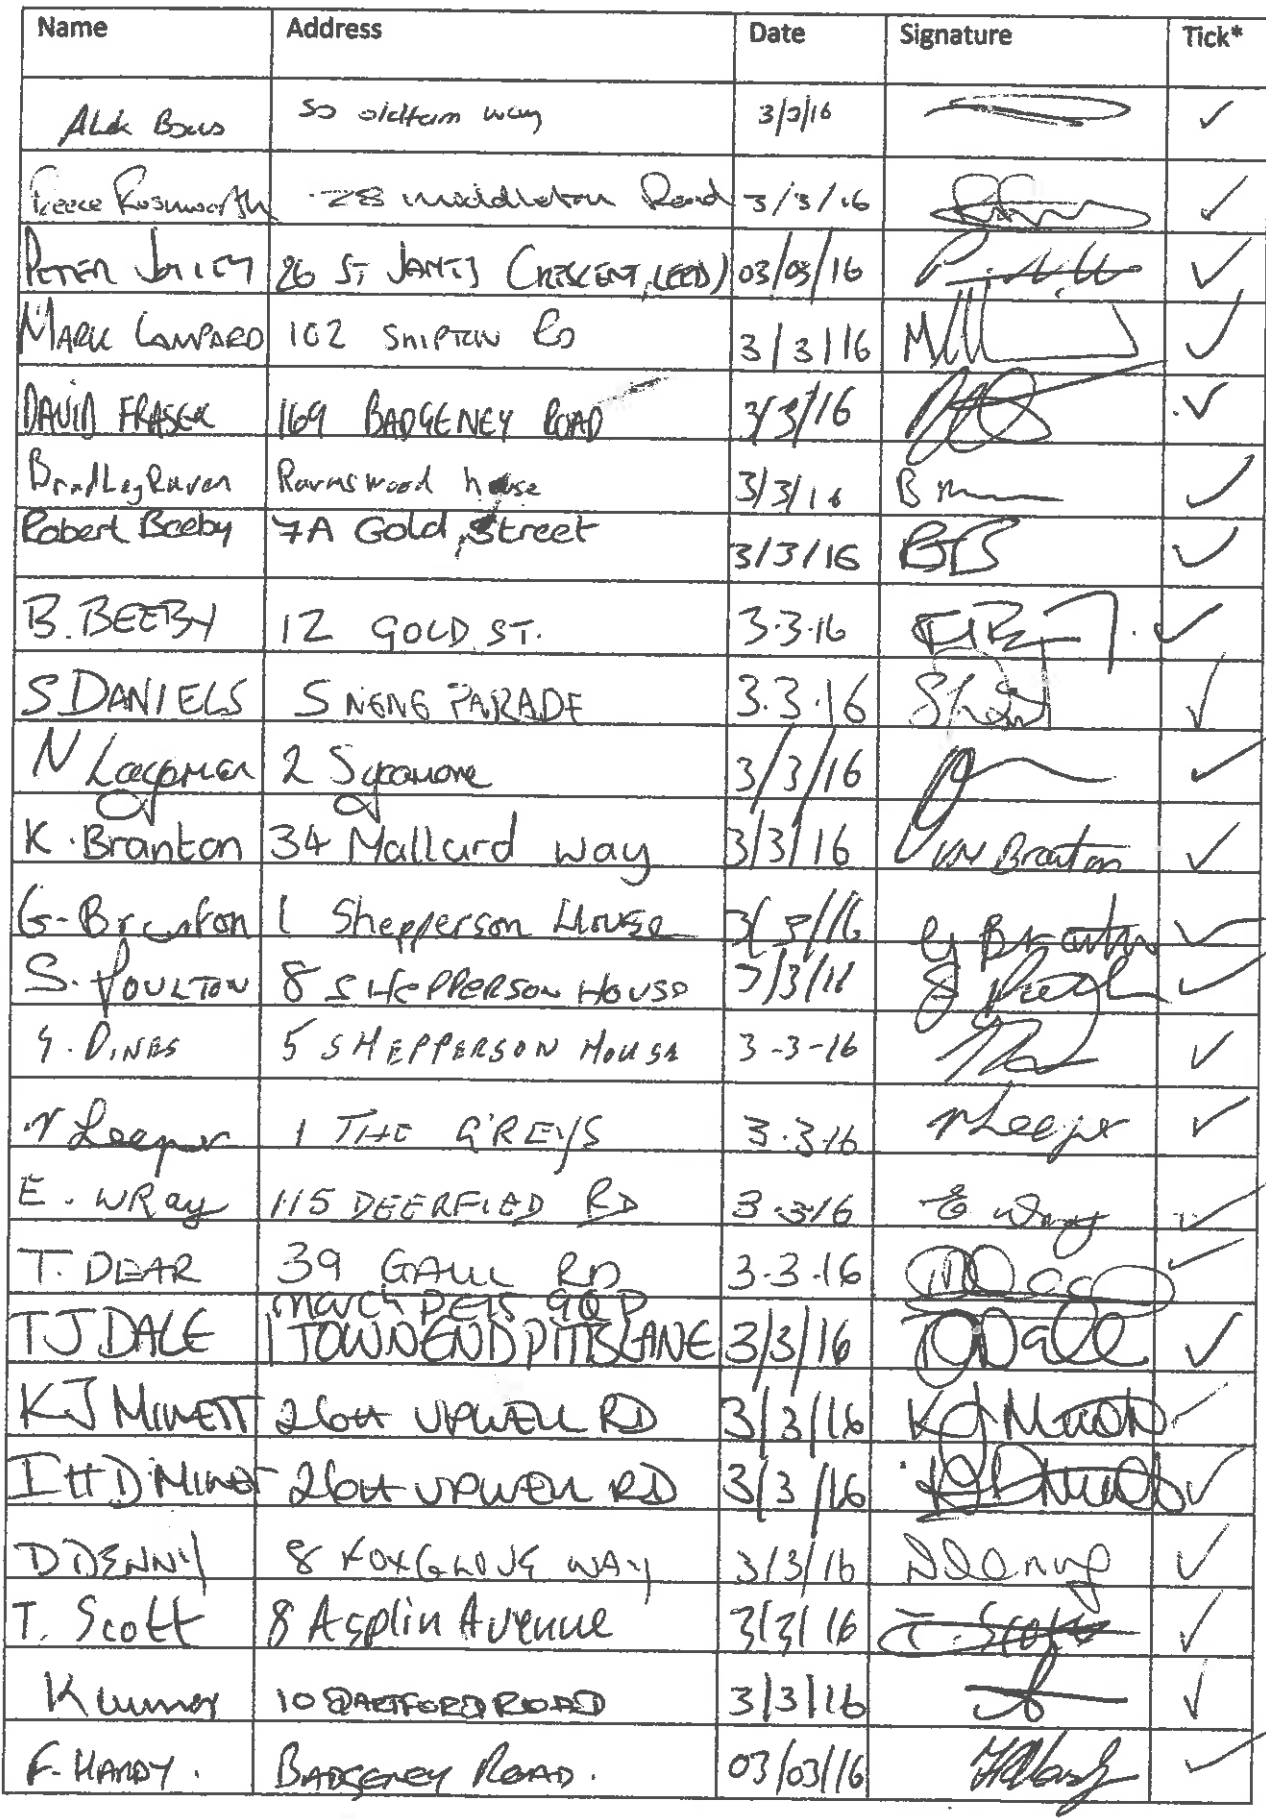 Name Address Date Signature Tick*
50 oldham way 3/3/16 ✓
Reece Rushworth 28 Middleton Road 3/3/16 ✓
PETER JOLLEY 26 ST JAMES CRESCENT, LEEDS 03/03/16 ✓
MARK LAMPARD 102 SHIPTON RD 3/3/16 ✓
DAVID FRASER 169 BADGENEY ROAD 3/3/16 ✓
Bradley Raven Ravenswood house 3/3/16 ✓
Robert Beeby 7A Gold Street 3/3/16 ✓
B. BEEBY 12 GOLD ST. 3.3.16 ✓
S DANIELS 5 NENE PARADE 3.3.16 ✓
N 2 Sycamore 3/3/16 ✓
K. Branton 34 Mallard way 3/3/16 Branton ✓
G. Branton 1 Shepperson House 3/3/16 G Branton ✓
S. POULTON 8 SHEPPERSON HOUSE 3/3/16 ✓
DINES 5 SHEPPERSON HOUSE 3-3-16 ✓
r Leeper 1 THE GREYS 3.3.16 r Leeper ✓
E. WRay 115 DEERFIED RD 3.3.16 E Wray ✓
T. DEAR 39 GAUL RD 3.3.16 ✓
March PE15 9QP
TJ DALE 1 TOWNEND PITTS LANE 3/3/16 TJ Dale ✓
KJ MINETT 264 UPWELL RD 3/3/16 KJ Minett ✓
I H D MINETT 264 UPWELL RD 3/3/16 ✓
D DENNY 8 FOXGLOVE WAY 3/3/16 D Denny ✓
T. Scott 8 Asplin Avenue 3/3/16 T. Scott ✓
K 10 DARTFORD ROAD 3/3/16 ✓
F. HARDY. BADGENEY ROAD. 03/03/16 ✓